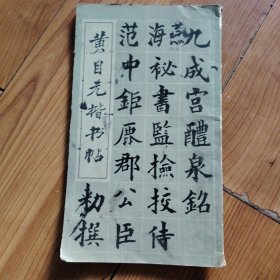 九成宫醴泉銘
燕
海祕書監撿挍侍
范中鉅鹿郡公臣
勅撰
黄自元楷书帖